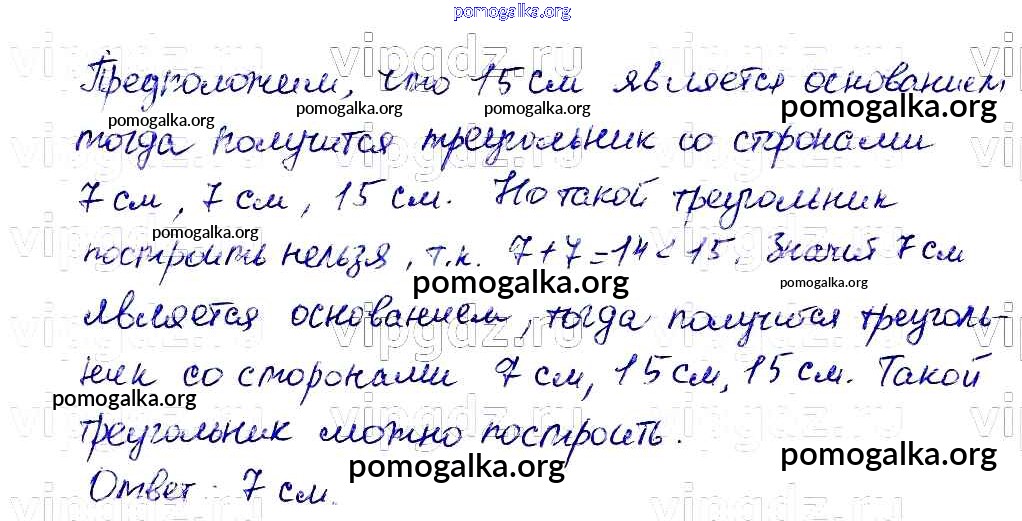 pomogalka.org
vipgdz.ru vipgdz.ru vipgdz.ru
Предположим, что 15 см является основанием,
pomogalka.org pomogalka.org pomogalka.org
тогда получится треугольник со сторонами
7 см, 7 см, 15 см. Но такой треугольник
pomogalka.org
построить нельзя, т.к. 7+7=14<15. Значит 7 см
pomogalka.org pomogalka.org
является основанием, тогда получится треуголь-
ник со сторонами 7 см, 15 см, 15 см. Такой
pomogalka.org
треугольник можно построить.
pomogalka.org pomogalka.org
Ответ: 7 см.